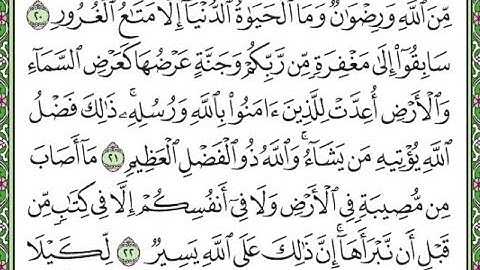 مِّنَ ٱللَّهِ وَرِضْوَٰنٌ ۚ وَمَا ٱلْحَيَوٰةُ ٱلدُّنْيَآ إِلَّا مَتَٰعُ ٱلْغُرُورِ ٢٠
سَابِقُوٓا۟ إِلَىٰ مَغْفِرَةٍ مِّن رَّبِّكُمْ وَجَنَّةٍ عَرْضُهَا كَعَرْضِ ٱلسَّمَآءِ
وَٱلْأَرْضِ أُعِدَّتْ لِلَّذِينَ ءَامَنُوا۟ بِٱللَّهِ وَرُسُلِهِۦ ۚ ذَٰلِكَ فَضْلُ
ٱللَّهِ يُؤْتِيهِ مَن يَشَآءُ ۚ وَٱللَّهُ ذُو ٱلْفَضْلِ ٱلْعَظِيمِ ٢١ مَآ أَصَابَ
مِن مُّصِيبَةٍ فِى ٱلْأَرْضِ وَلَا فِىٓ أَنفُسِكُمْ إِلَّا فِى كِتَٰبٍ مِّن
قَبْلِ أَن نَّبْرَأَهَآ ۚ إِنَّ ذَٰلِكَ عَلَى ٱللَّهِ يَسِيرٌ ٢٢ لِّكَيْلَا